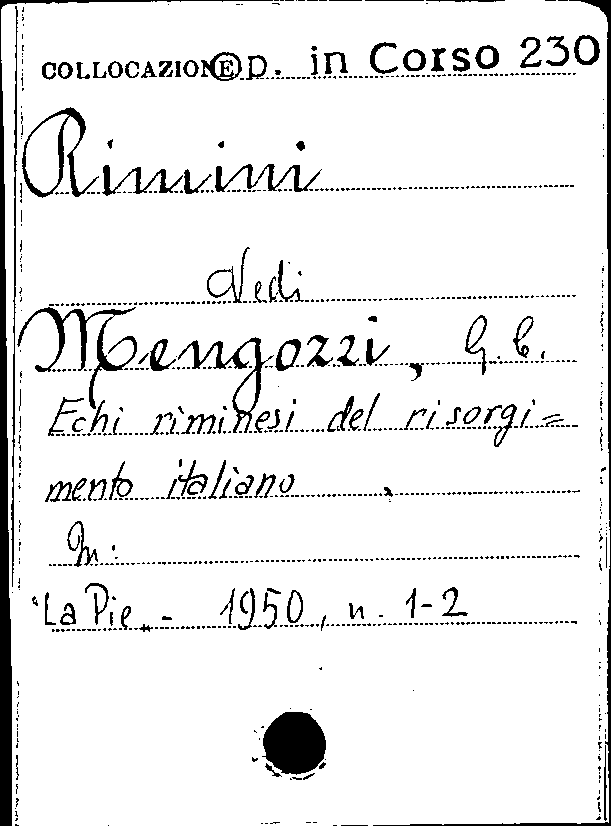 COLLOCAZIONE p. in Corso 230
Rimini
Vedi
Mengozzi, G. C.
Echi riminesi del risorgi=
mento italiano.
In:
"La Pie" - 1950, n. 1-2